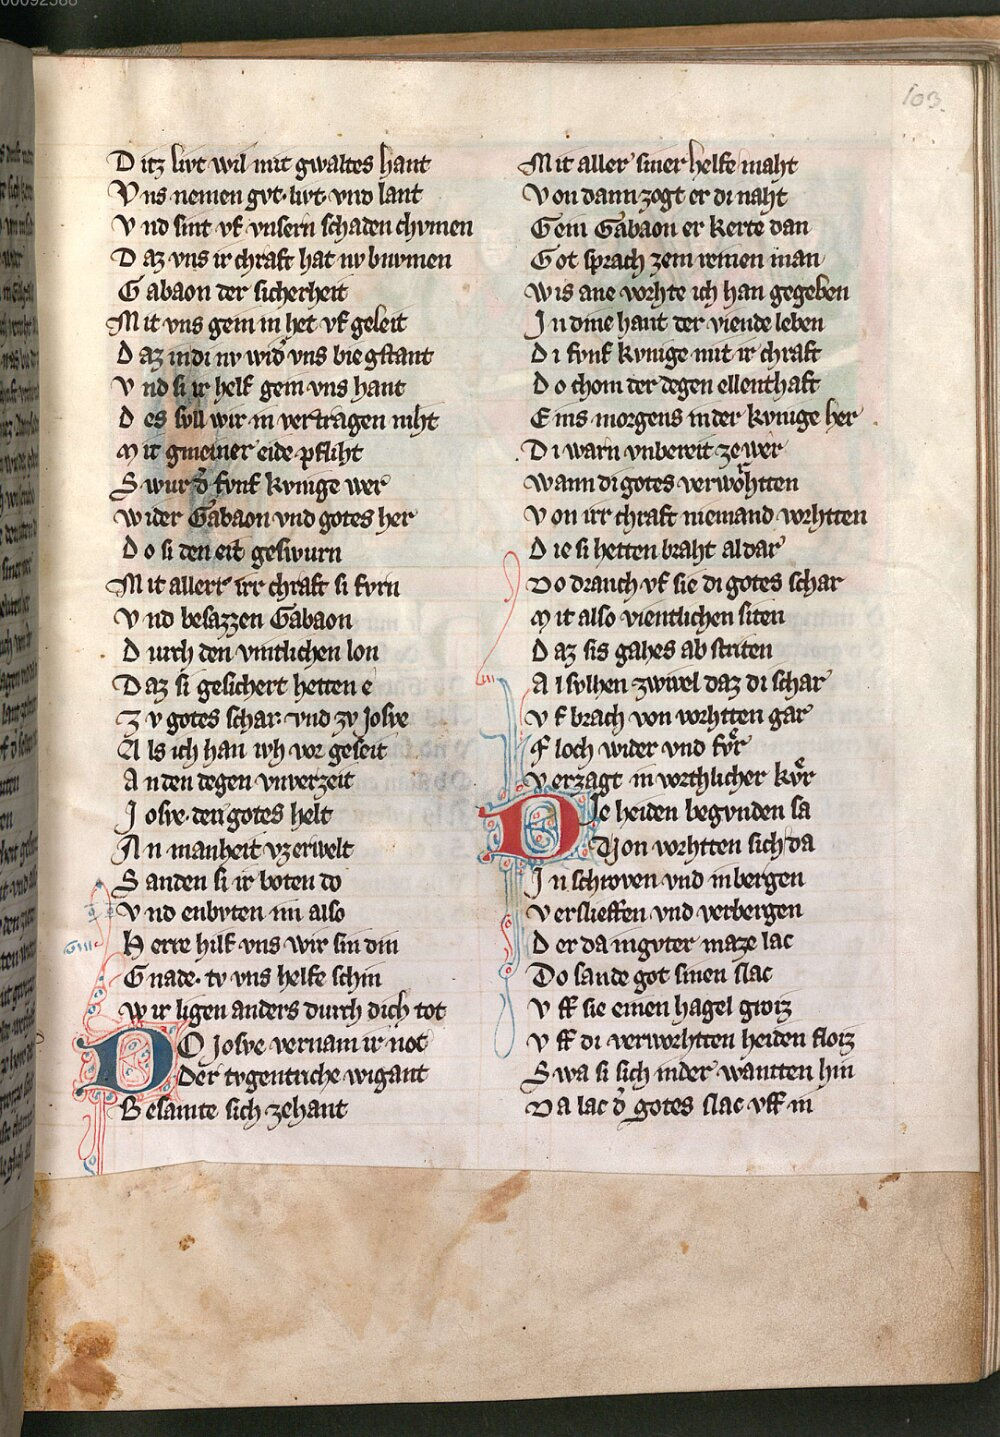 00092588
103.
Ditz livt wil mit gwaltes hant
Vns nemen gvt livt vnd lant
Vnd sint vf vnsern schaden chvmen
Daz vns ir chraft hat nv bnvmen
Gabaon der sicherheit
Mit vns gein in het vf geleit
Daz indi nv wid vns bie gstant
Vnd si ir helf gein vns hant
Des svll wir in vertragen niht
Mit gmeiner eide pfliht
Swur d fvnf kvnige wer
Wider Gabaon vnd gotes her
Do si den eit geswurn
Mit allert irr chraft si fvrn
Vnd besazzen Gabaon
Durch den vintlichen lon
Daz si gesichert hetten e
Zv gotes schar vnd zv Josve
Als ich han ivh vor geseit
An den degen vnverzeit
Josve den gotes helt
An manheit vzerwelt
Sanden si ir boten do
Vnd enbvten im also
Herre hilf vns wir sin din
Gnade tv vns helfe schin
Wir ligen anders durch dich tot
DO Josve vernam ir not
Der tvgentriche wigant
Besamte sich zehant
Mit aller siner helfe maht
Von dann zogt er di naht
Gein Gabaon er kerte dan
Got sprach zem reinen man
Wis ane vorhte ich han gegeben
In dine hant der viende leben
Di fvnf kvnige mit ir chraft
Do chom der degen ellenthaft
Eins morgens in der kvnige her
Di warn vnbereit ze wer
Wann di gotes verworhtten
Von irr chraft niemand vorhtten
Die si hetten braht aldar
Do drauch vf sie di gotes schar
Mit also vientlichen siten
Daz sis gahes ab striten
Al svlhen zwivel daz di schar
Vf brach von vorhtten gar
Floch wider vnd fvr
Verzagt in vorthlicher kvr
Die heiden begvnden sa
Von vorhtten sich da
In schroven vnd in bergen
Verslieffen vnd verbergen
Der da in gvter maze lac
Do sande got sinen slac
Vff sie einen hagel groiz
Vff di verworhtten heiden floiz
Swa si sich inder wantten hin
Da lac d gotes slac vff in